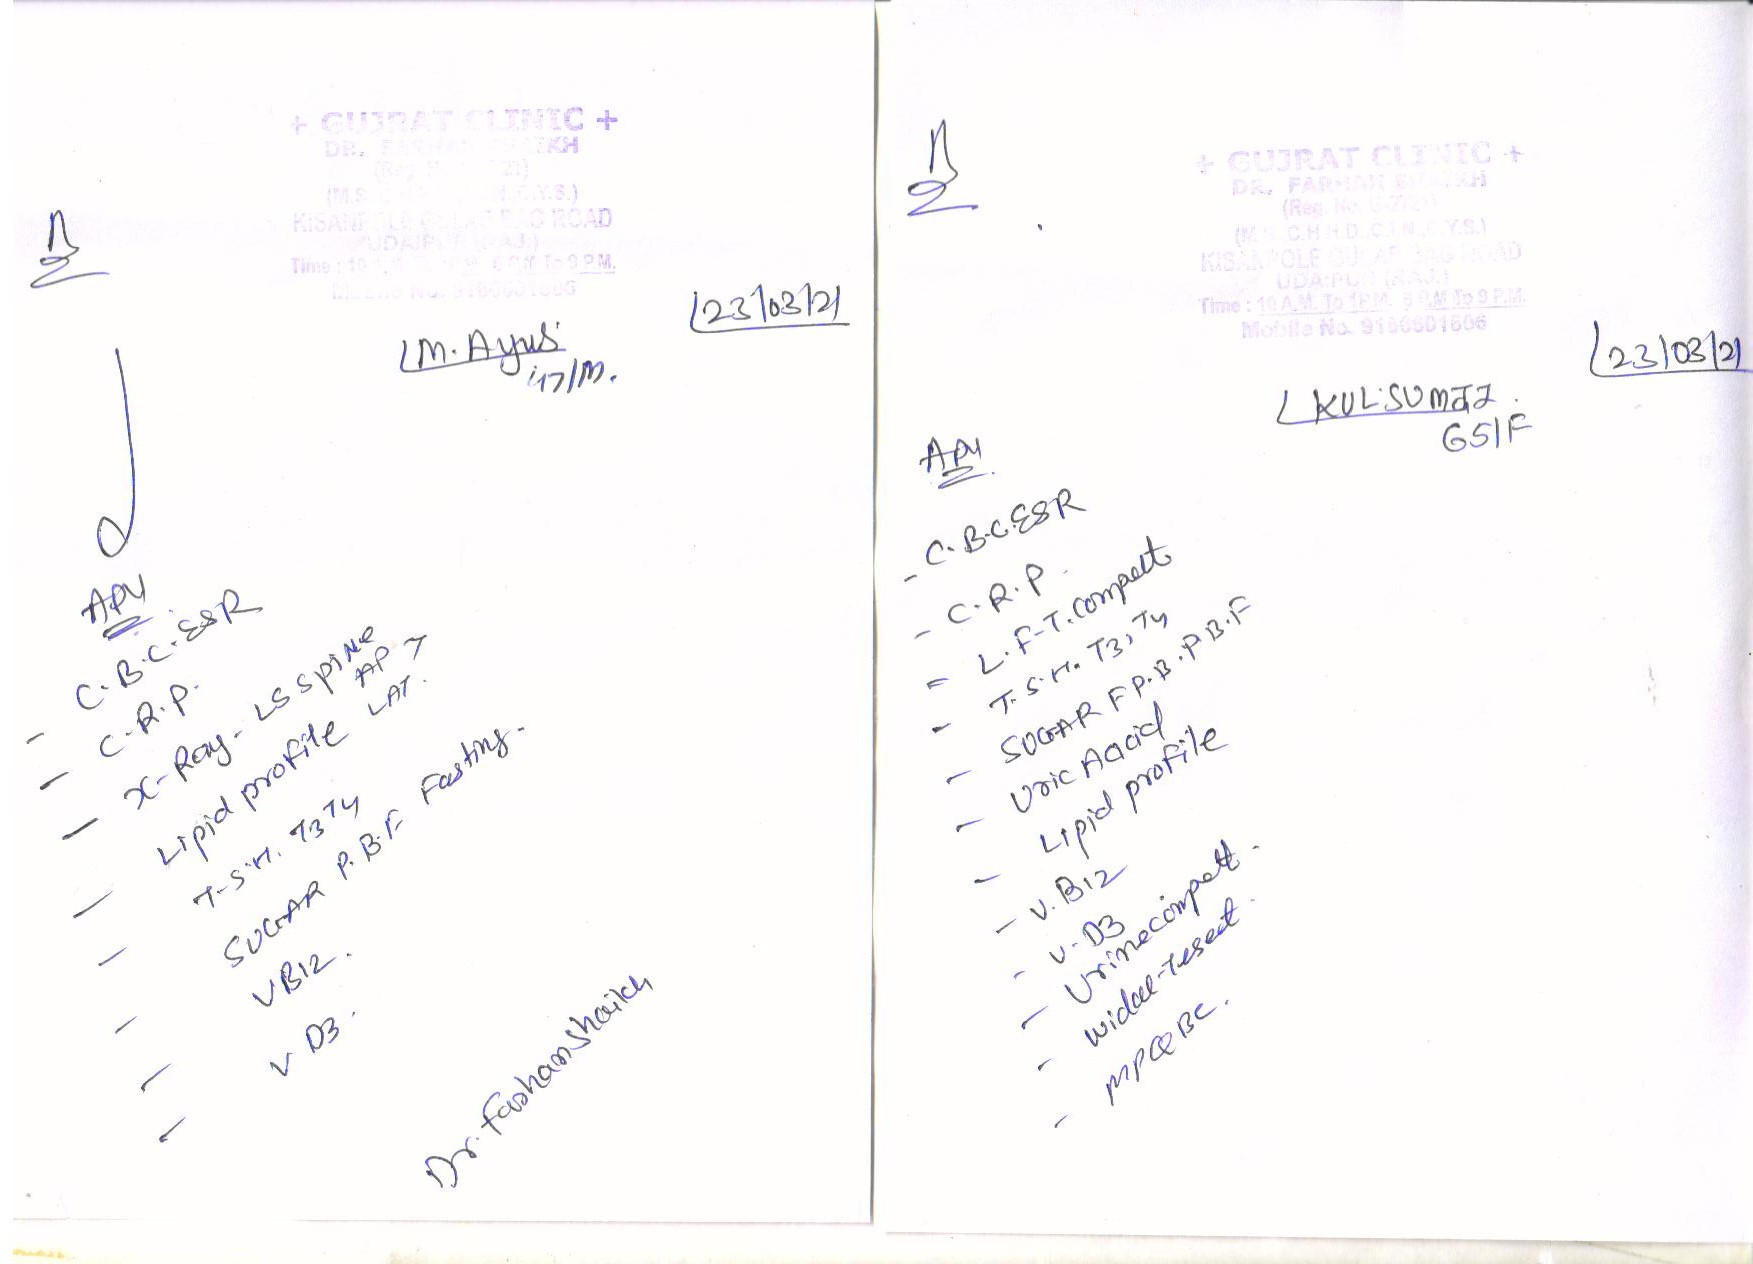 + GUJRAT CLINIC +
DR. FARHAN SHAIKH
KISANPOLE GULAB BAG ROAD
UDAIPUR (RAJ.)
Time : 10 A.M. To 1 P.M. 6 P.M To 9 P.M.
Mobile No. 9166601606
23/03/21
M. Ayus
17/M.
C.B.C. ESR
C.R.P.
X-Ray - LS Spine AP
LAT.
Lipid profile
T.S.H. T3 T4
SUGAR P.B.F Fasting.
V B12.
V D3.
Dr. Farhan Shaikh
+ GUJRAT CLINIC +
DR. FARHAN SHAIKH
(Reg. No.
KISANPOLE GULAB BAG ROAD
UDAIPUR (RAJ.)
Time : 10 A.M. To 1 P.M. 6 P.M To 9 P.M.
Mobile No. 9166601606
23/03/21
65/F
C.B.C. ESR
C.R.P.
L.F.T. Compelt
T.S.H. T3, T4
SUGAR F P.B. P.B.F
Uric Acid
Lipid profile
V. B12
V. D3
Urine compelt.
widal-Tesed.
MPQBC.